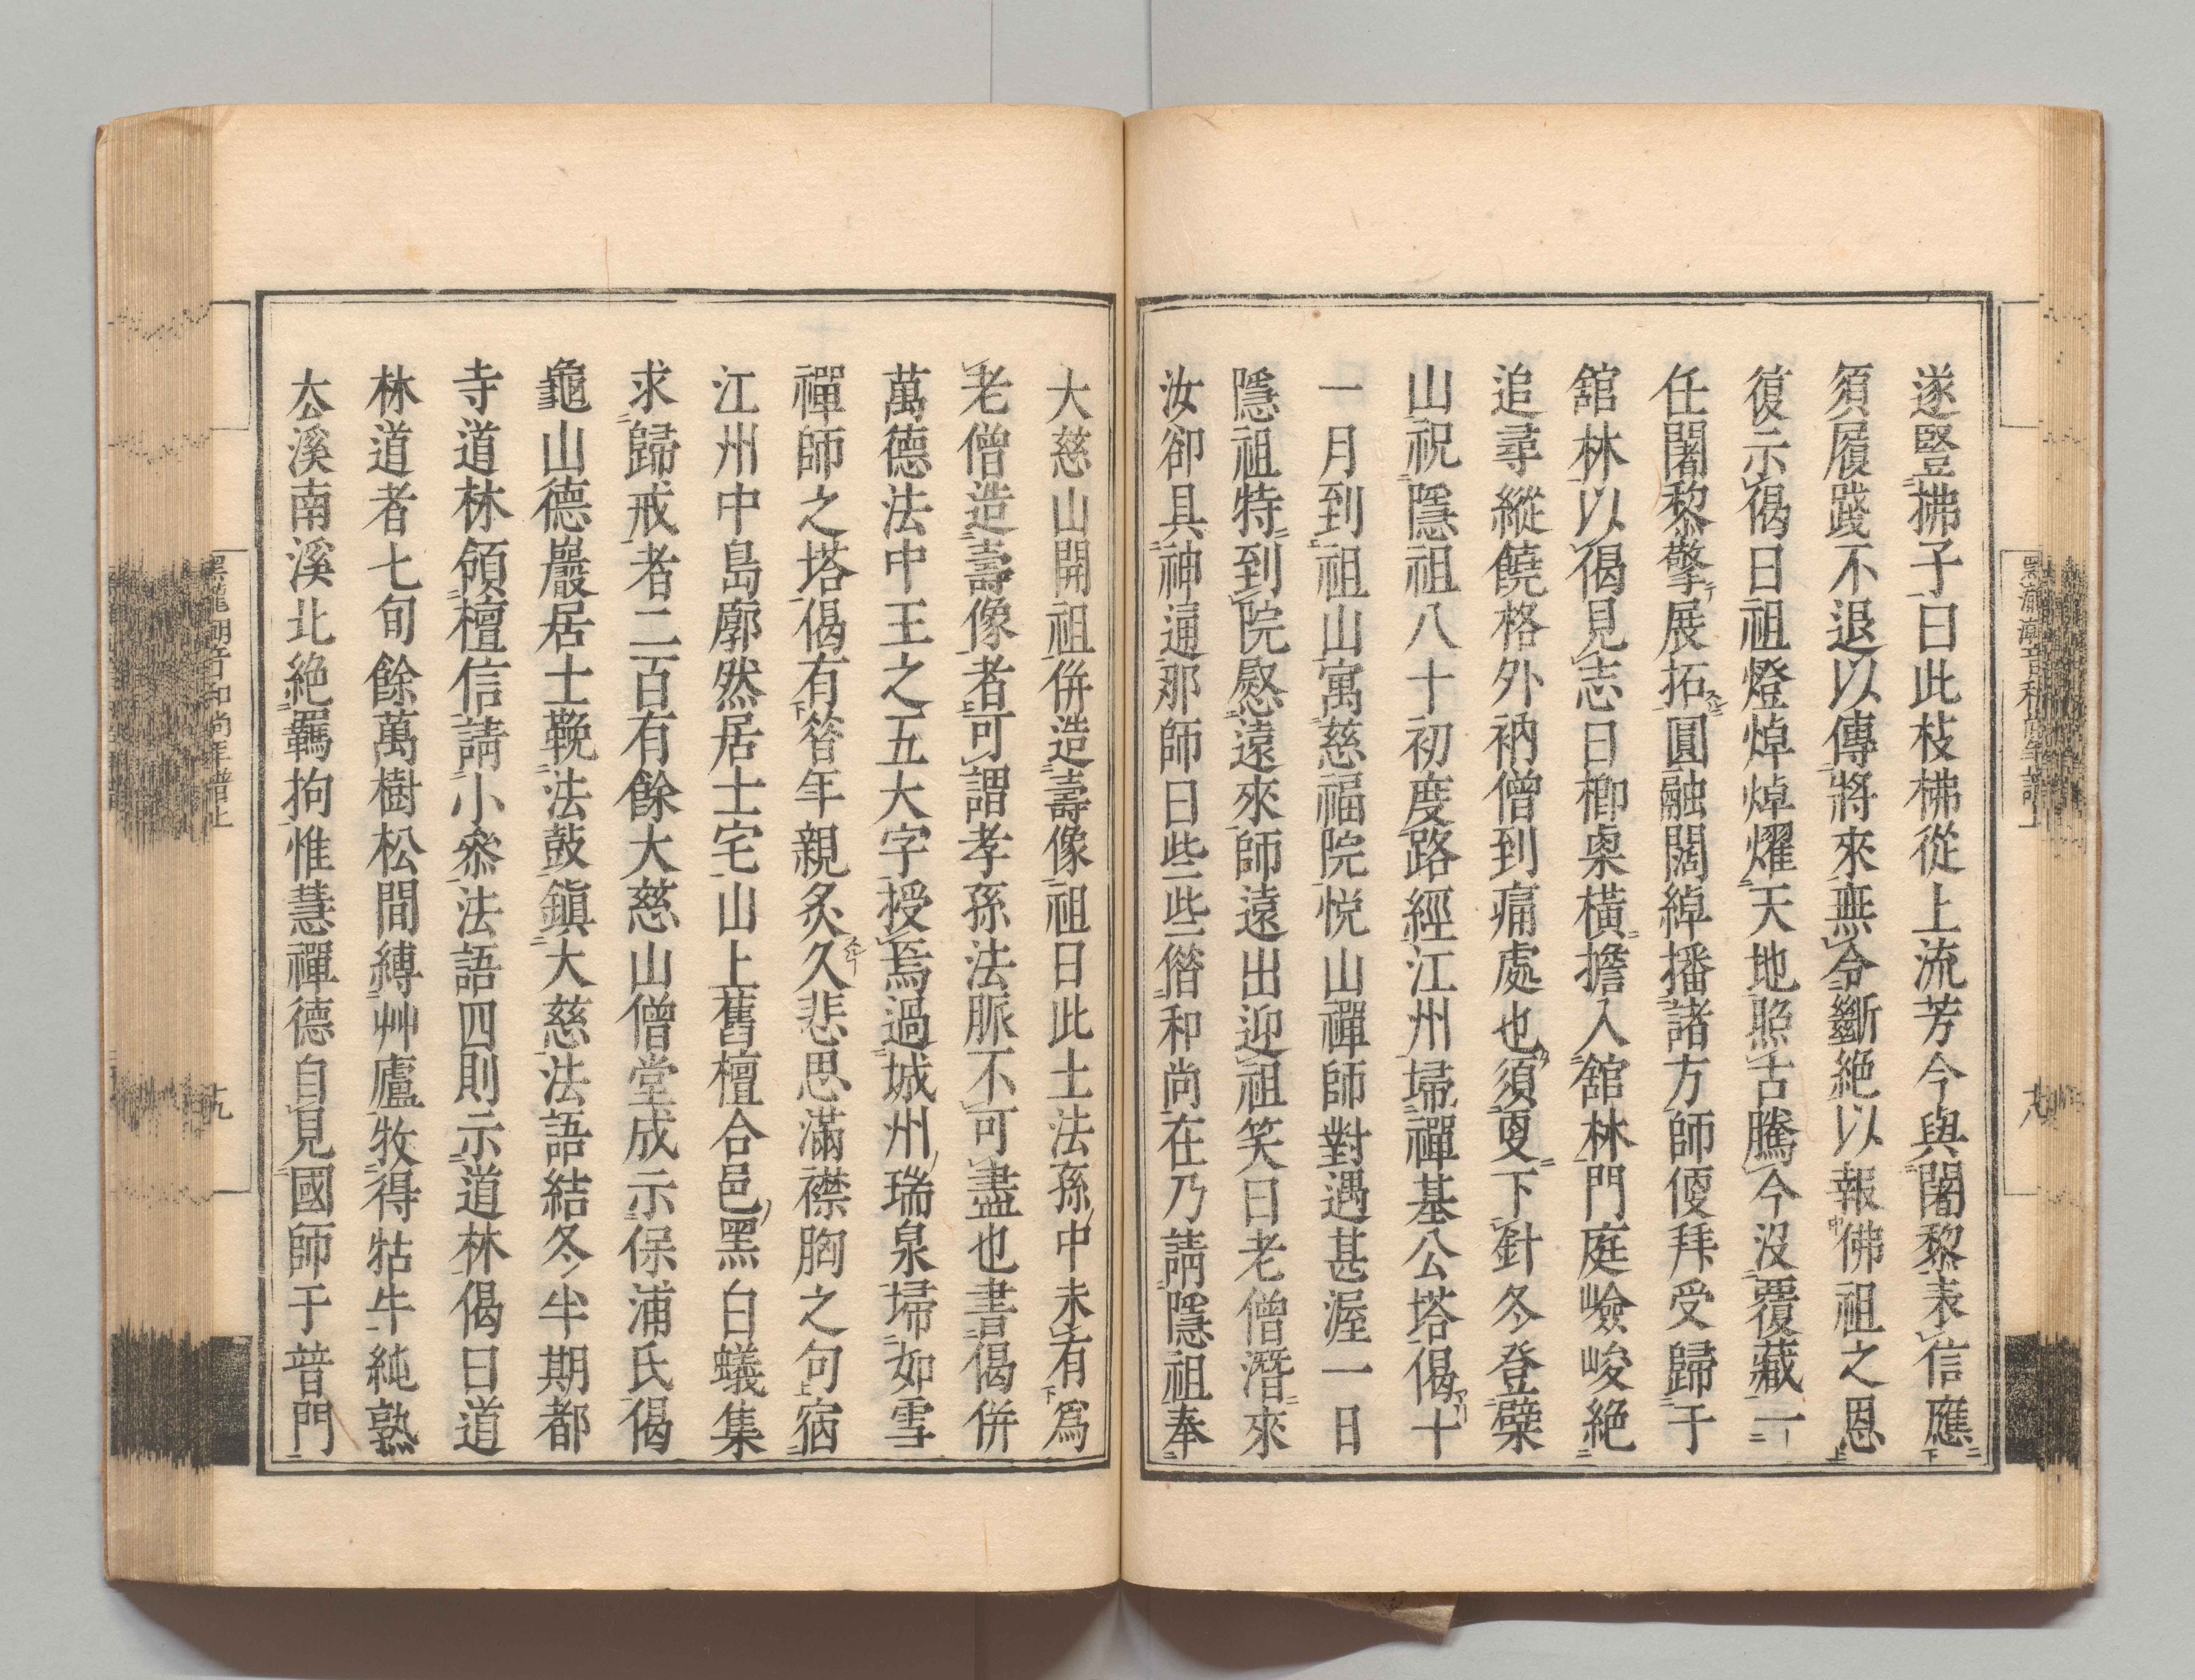 遂豎拂子曰此枝梻從上流芳今與闍黎表信應
須履踐不退以傳將來無令斷絕以報佛祖之恩
復示偈曰祖燈焯焯燿天地照古騰今沒覆藏一
任闍黎擎展拓圓融闊綽播諸方師便拜受歸于
舘林以偈見志曰楖㮚橫擔入舘林門庭嶮峻絕
追尋縱饒格外衲僧到痛處也須更下針冬登檗
山祝隱祖八十初度路經江州埽禪基公塔偈十
一月到祖山寓慈福院悅山禪師對遇甚渥一日
隱祖特到院慰遠來師遠出迎祖笑曰老僧潛來
汝卻具神通那師曰些些偺和尚在乃請隱祖奉
大慈山開祖併造壽像祖曰此土法孫中未有為
老僧造壽像者可謂孝孫法脈不可盡也書偈併
萬德法中王之五大字授焉過城州瑞泉埽如雪
禪師之塔偈有昝年親炙久悲思滿襟胸之句宿
江州中島廓然居士宅山上舊檀合邑黑白蟻集
求歸戒者二百有餘大慈山僧堂成示保浦氏偈
龜山德巖居士鞔法鼓鎮大慈法語結冬半期都
寺道林領檀信請小參法語四則示道林偈曰道
林道者七旬餘萬樹松間縛艸廬牧得牯牛純熟
厺溪南溪北絕羈拘惟慧禪德自見國師于普門
黑瀧潮音和尚年譜上
十八
黑瀧潮音和尚年譜上
十九